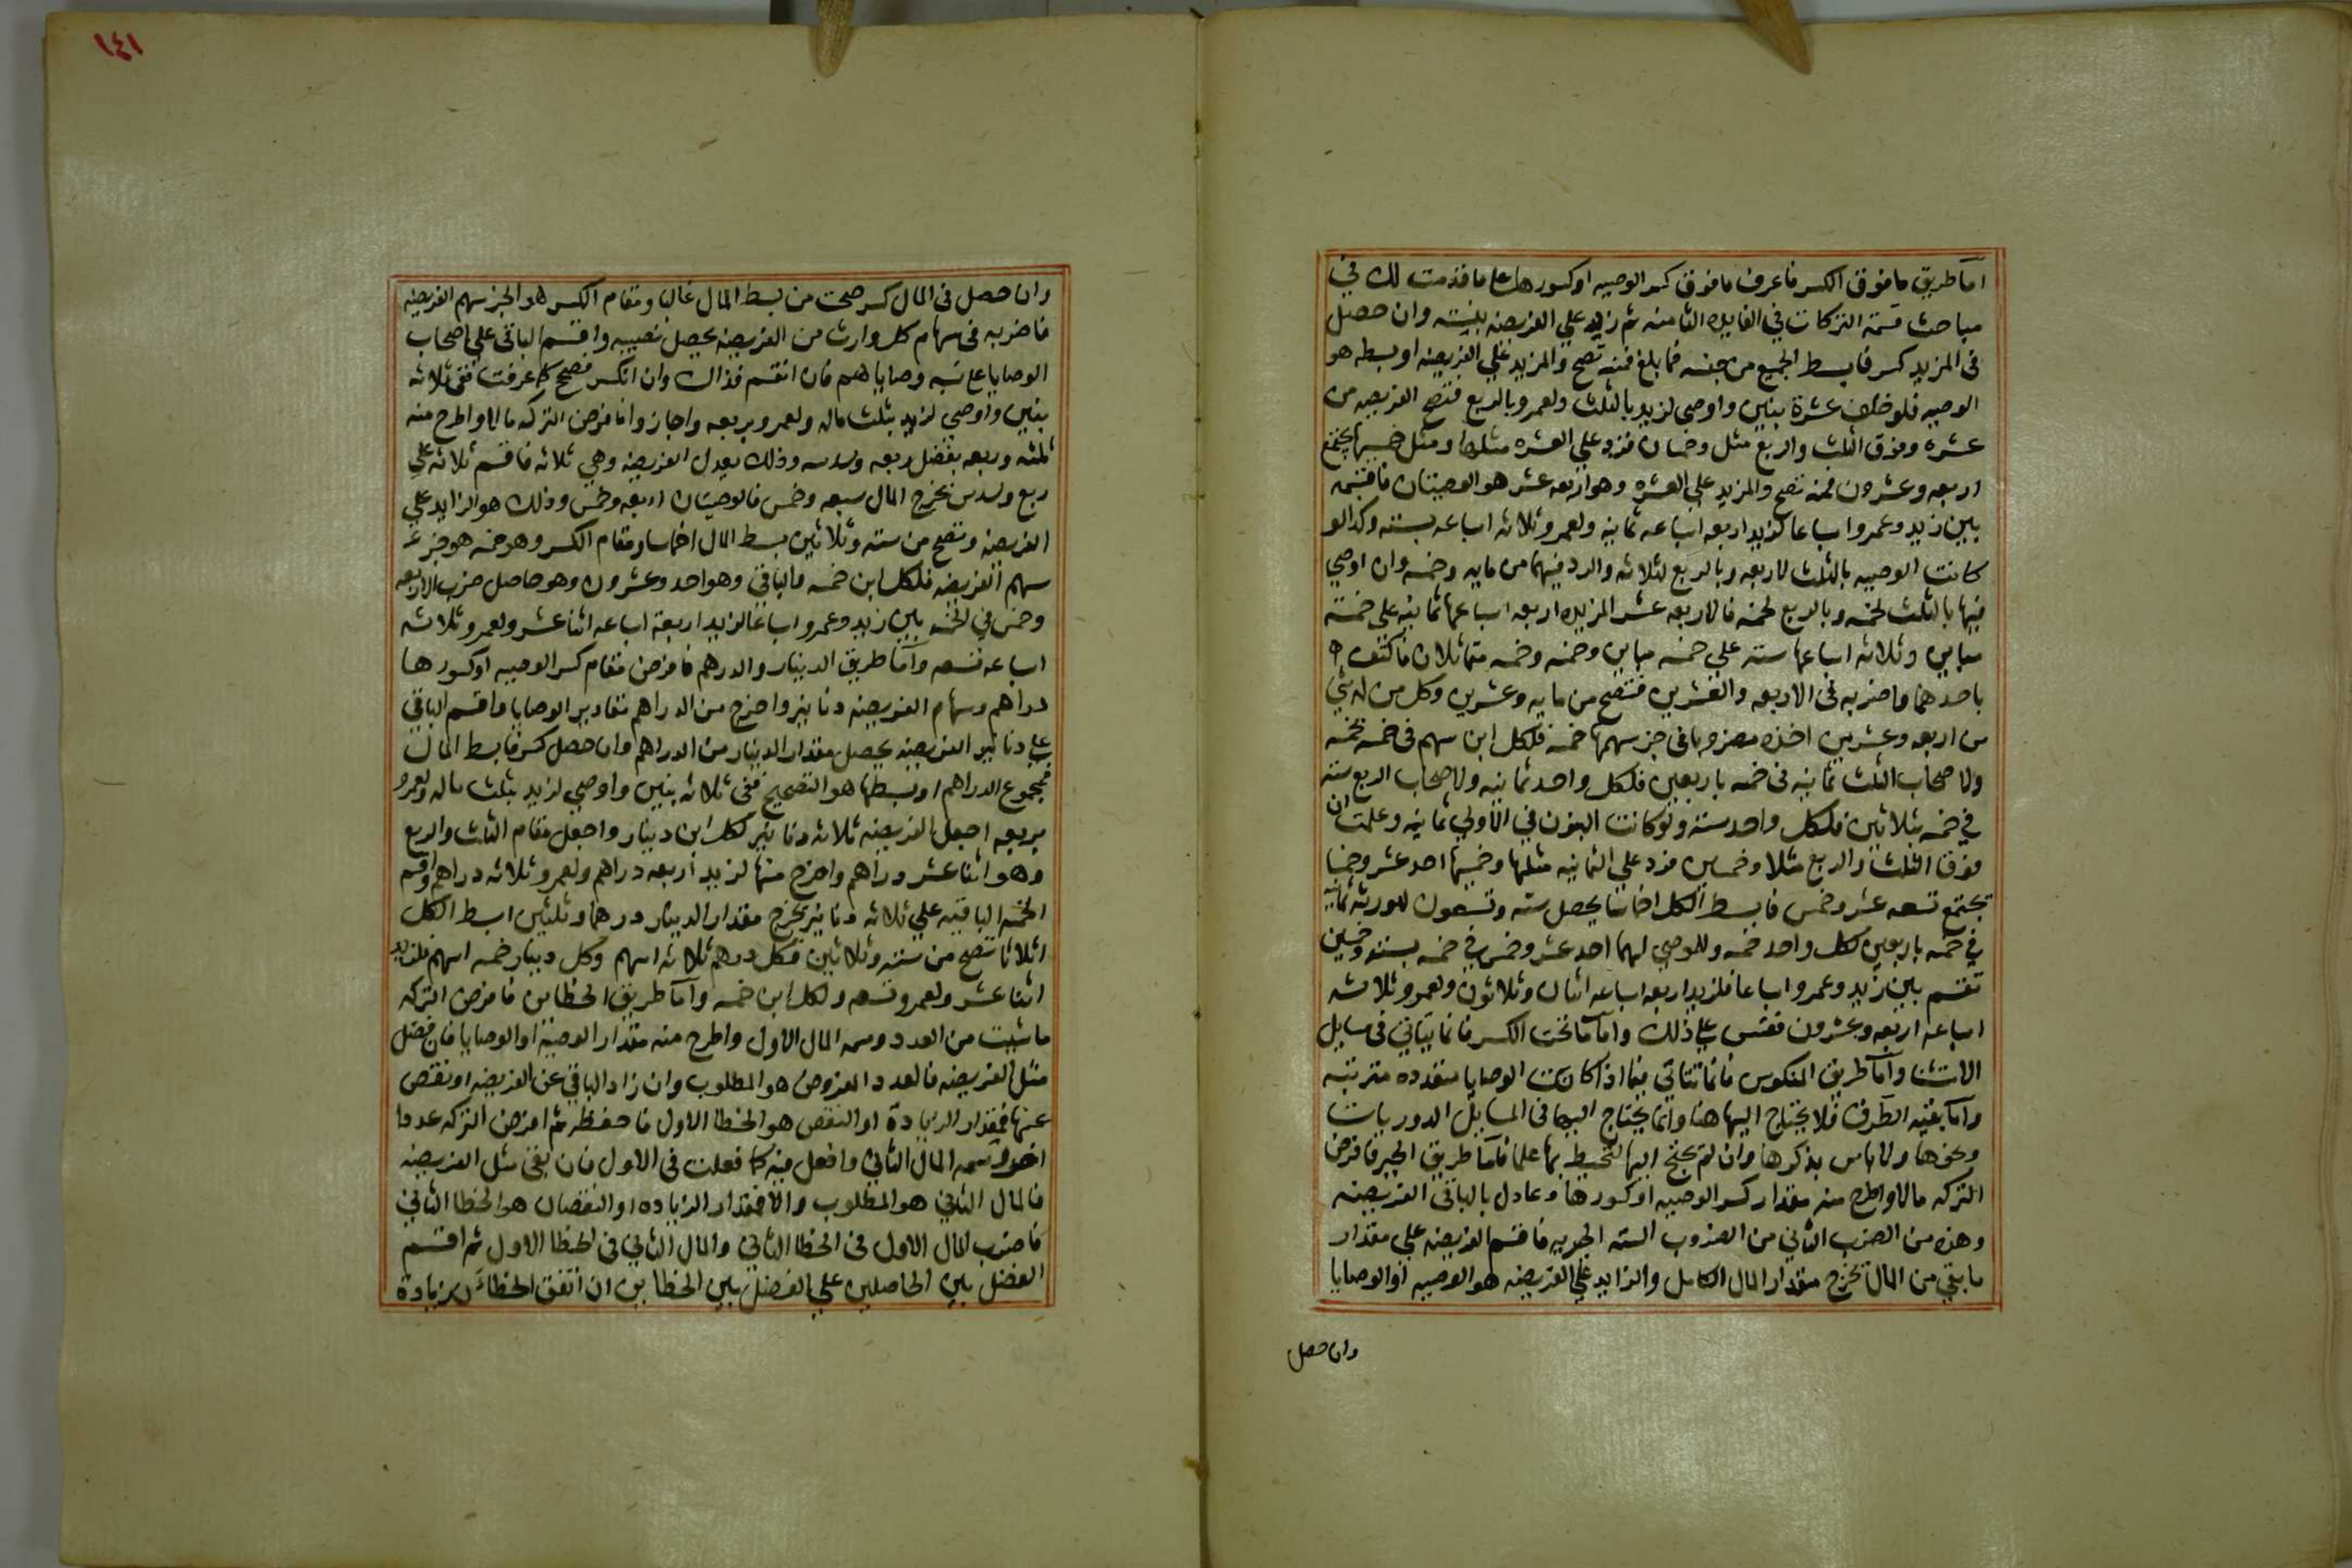 اما طريق ما فوق الكسر فاعرف ما فوق كسر الوصيه او كسورها على ما قدمت لك في
مباحث قسمة التركات في الفايده الثامنه ثم زيد علي الفريضه بنسبته وان حصل
في المزيد كسر فابسط الجميع من جنسه فما بلغ فمنه تصح والمزيد علي الفريضه او بسطه هو
الوصيه فلو خلف عشرة بنين واوصي لزيد بالثلث ولعمرو بالربع فتصح الفريضه من
عشره وفوق الثلث والربع مثل وخمسان فزد علي العشره مثلها ومثل خمسيها يجتمع
اربعه وعشرون فمنه تصح والمزيد علي العشره وهو اربعه عشر هو الوصيتان فاقسمه
بين زيد وعمرو اسباعا لزيد اربعه اسباعه ثمانيه ولعمرو ثلاثه اسباعه بسته وكذا لو
كانت الوصيه بالثلث لاربعه وبالربع لثلاثه والرد فيهما من مايه وخمسه وان اوصي
فيها بالثلث لخمسه وبالربع لخمسه فالاربعه عشر المزيده اربعه اسباعها ثمانيه على خمسة
مباين وثلاثه اسباعها سته علي خمسه مباين وخمسه وخمسه متماثلان فاكتف
باحدهما واضربه في الاربعه والعشرين فتصح من مايه وعشرين وكل من له شي
من اربعه وعشرين اخذه مضروبا في جز سهمها خمسه فلكل ابن سهم في خمسه بخمسه
ولاصحاب الثلث ثمانيه في خمسه باربعين فلكل واحد ثمانيه ولاصحاب الربع سته
في خمسه بثلاثين فلكل واحد سته ولو كانت البنون في الاولي ثمانيه وعلمت ان
فوق الثلث والربع مثلا وخمسين فزد علي الثمانيه مثلها وخمسيها احد عشر وخمسا
يجتمع تسعه عشر وخمس فابسط الكل اخماسا يحصل سته وتسعون للورثه ثمانيه
في خمسه باربعين لكل واحد خمسه وللموصي لهما احد عشر وخمس في خمسه بسته وخمسين
تقسم بين زيد وعمرو اسباعا فلزيد اربعه اسباعه اثنان وثلاثون ولعمرو ثلاثه
اسباعه اربعه وعشرون فقس علي ذلك واما ما تحت الكسر فانما يتاتي في مسايل
الاستثنا واما طريق المنكوس فانما تتاتي فيما اذا كانت الوصايا متعدده مترتبه
واما بقيه الطرق فلا يحتاج اليها هنا وانما يحتاج اليها في المسايل الدوريات
ونحوها ولا باس بذكرها وان لم يحتج اليها لتحيط بها علما فاما طريق الجبر فافرض
التركه مالا واطرح منه مقدار كسر الوصيه او كسورها وعادل بالباقي الفريضه
وهذه من الضرب الثاني من الضروب السته الجبريه فاقسم الفريضه علي مقدار
ما بقي من المال تخرج مقدار المال الكامل والزايد علي الفريضه هو الوصيه او الوصايا
وان حصل
١٤١
وان حصل في المال كسر صحت من بسط المال غالبا ومقام الكسر هو الجز سهم الفريضه
فاضربه في سهام كل وارث من الفريضه يحصل نصيبه واقسم الباقي علي اصحاب
الوصايا علي نسبه وصاياهم فان انقسم فذاك وان انكسر فصحح كما عرفت ففي ثلاثه
بنين واوصي لزيد بثلث ماله ولعمرو بربعه واجازوا فافرض التركه مالا واطرح منه
ثلثه وربعه يفضل ربعه وسدسه وذلك يعدل الفريضه وهي ثلاثه فاقسم ثلاثه علي
ربع وسدس يخرج المال سبعه وخمس فالوصيتان اربعه وخمس وذلك هو الزايد علي
الفريضه وتصح من سته وثلاثين بسط المال اخماسا ومقام الكسر وهو خمسه هو جز
سهم الفريضه فلكل ابن خمسه والباقي وهو احد وعشرون وهو حاصل ضرب الاربعه
وخمس في الخمسه بين زيد وعمرو اسباعا لزيد اربعة اسباعه اثنا عشر ولعمرو ثلاثه
اسباعه تسعه واما طريق الدينار والدرهم فافرض مقام كسر الوصيه او كسورها
دراهم وسهام الفريضه دنانير واخرج من الدراهم مقادير الوصايا واقسم الباقي
علي دنانير الفريضه يحصل مقدار الدينار من الدراهم وان حصل كسر فابسط المال
فمجموع الدراهم او بسطها هو التصحيح ففي ثلاثه بنين واوصي لزيد بثلث ماله ولعمرو
بربعه اجعل الفريضه ثلاثه دنانير لكل ابن دينار واجعل مقام الثلث والربع
وهو اثنا عشر دراهم واخرج منها لزيد اربعه دراهم ولعمرو ثلاثه دراهم واقسم
الخمسه الباقيه علي ثلاثه دنانير يخرج مقدار الدينار درهما وثلثين ابسط الكل
اثلاثا تصح من سته وثلاثين فكل درهم ثلاثه اسهم وكل دينار خمسه اسهم فلزيد
اثنا عشر ولعمرو تسعه ولكل ابن خمسه واما طريق الخطاين فافرض التركه
ما شيت من العدد وسمه المال الاول واطرح منه مقدار الوصيه او الوصايا فان فضل
مثل الفريضه فالعدد المفروض هو المطلوب وان زاد الباقي عن الفريضه او نقص
عنها فمقدار الزيادة او النقص هو الخطا الاول فاحفظه ثم افرض التركه عددا
اخر وسمه المال الثاني وافعل فيه كما فعلت في الاول فان بقي مثل الفريضه
فالمال الثاني هو المطلوب والا فمقدار الزياده او النقصان هو الخطا الثاني
فاضرب المال الاول في الخطا الثاني والمال الثاني في الخطا الاول ثم اقسم
الفضل بين الحاصلين علي الفضل بين الخطاين ان اتفق الخطاءن بزيادة